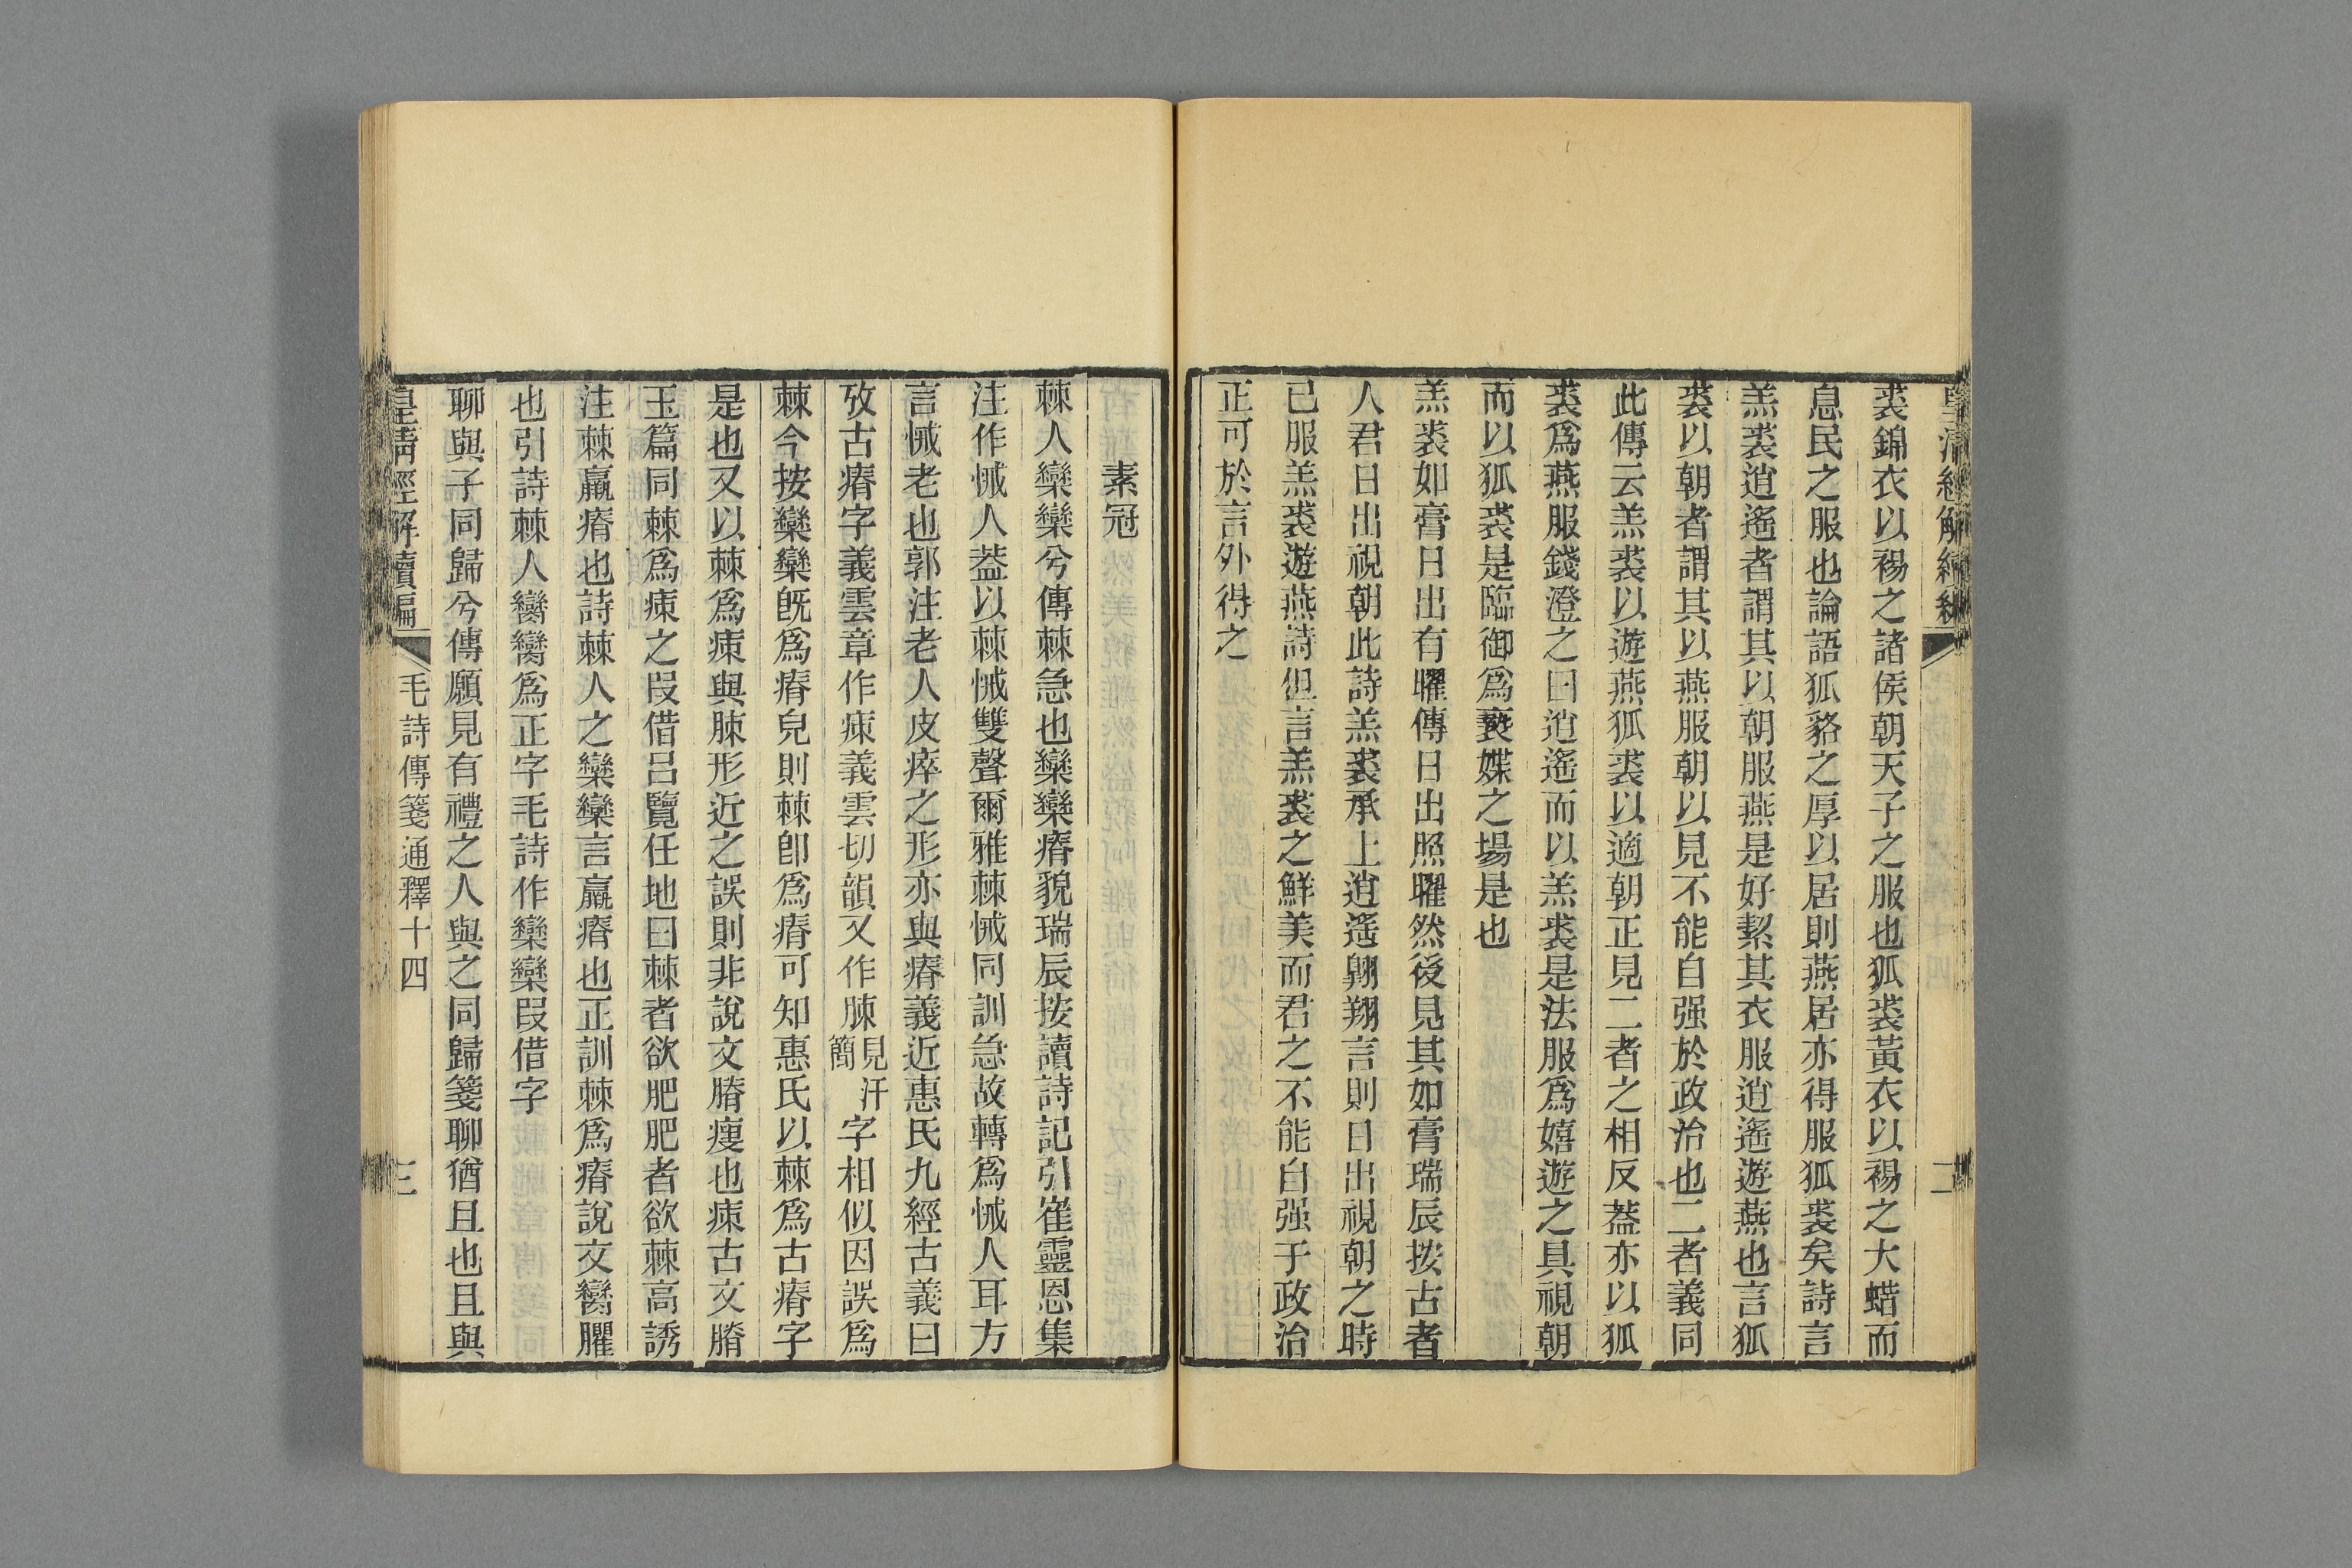 皇清經解續編
二
裘錦衣以裼之諸侯朝天子之服也狐裘黃衣以裼之大蜡而
息民之服也論語狐貉之厚以居則燕居亦得服狐裘矣詩言
羔裘逍遙者謂其以朝服燕是好絜其衣服逍遙遊燕也言狐
裘以朝者謂其以燕服朝以見不能自强於政治也二者義同
此傳云羔裘以遊燕狐裘以適朝正見二者之相反葢亦以狐
裘爲燕服錢澄之曰逍遙而以羔裘是法服爲嬉遊之具視朝
而以狐裘是臨御爲䙝媟之場是也
羔裘如膏日出有曜傳日出照曜然後見其如膏瑞辰按古者
人君日出視朝此詩羔裘承上逍遙翺翔言則日出視朝之時
已服羔裘遊燕詩但言羔裘之鮮美而君之不能自强于政治
正可於言外得之
素冠
棘人欒欒兮傳棘急也欒欒瘠貌瑞辰按讀詩記引崔靈恩集
注作悈人葢以棘悈雙聲爾雅棘悈同訓急故轉爲悈人耳方
言悈老也郭注老人皮瘁之形亦與瘠義近惠氏九經古義曰
攷古瘠字義雲章作㾊義雲切韻又作腖見汗簡字相似因誤爲
棘今按欒欒旣爲瘠皃則棘卽爲瘠可知惠氏以棘爲古瘠字
是也又以棘爲㾊與腖形近之誤則非說文膌瘦也㾊古文膌
玉篇同棘爲㾊之叚借呂覽任地曰棘者欲肥肥者欲棘高誘
注棘羸瘠也詩棘人之欒欒言羸瘠也正訓棘爲瘠說文臠臞
也引詩棘人臠臠爲正字毛詩作欒欒叚借字
聊與子同歸兮傳願見有禮之人與之同歸箋聊猶且也且與
皇淸經解續編
毛詩傳箋通釋十四
三